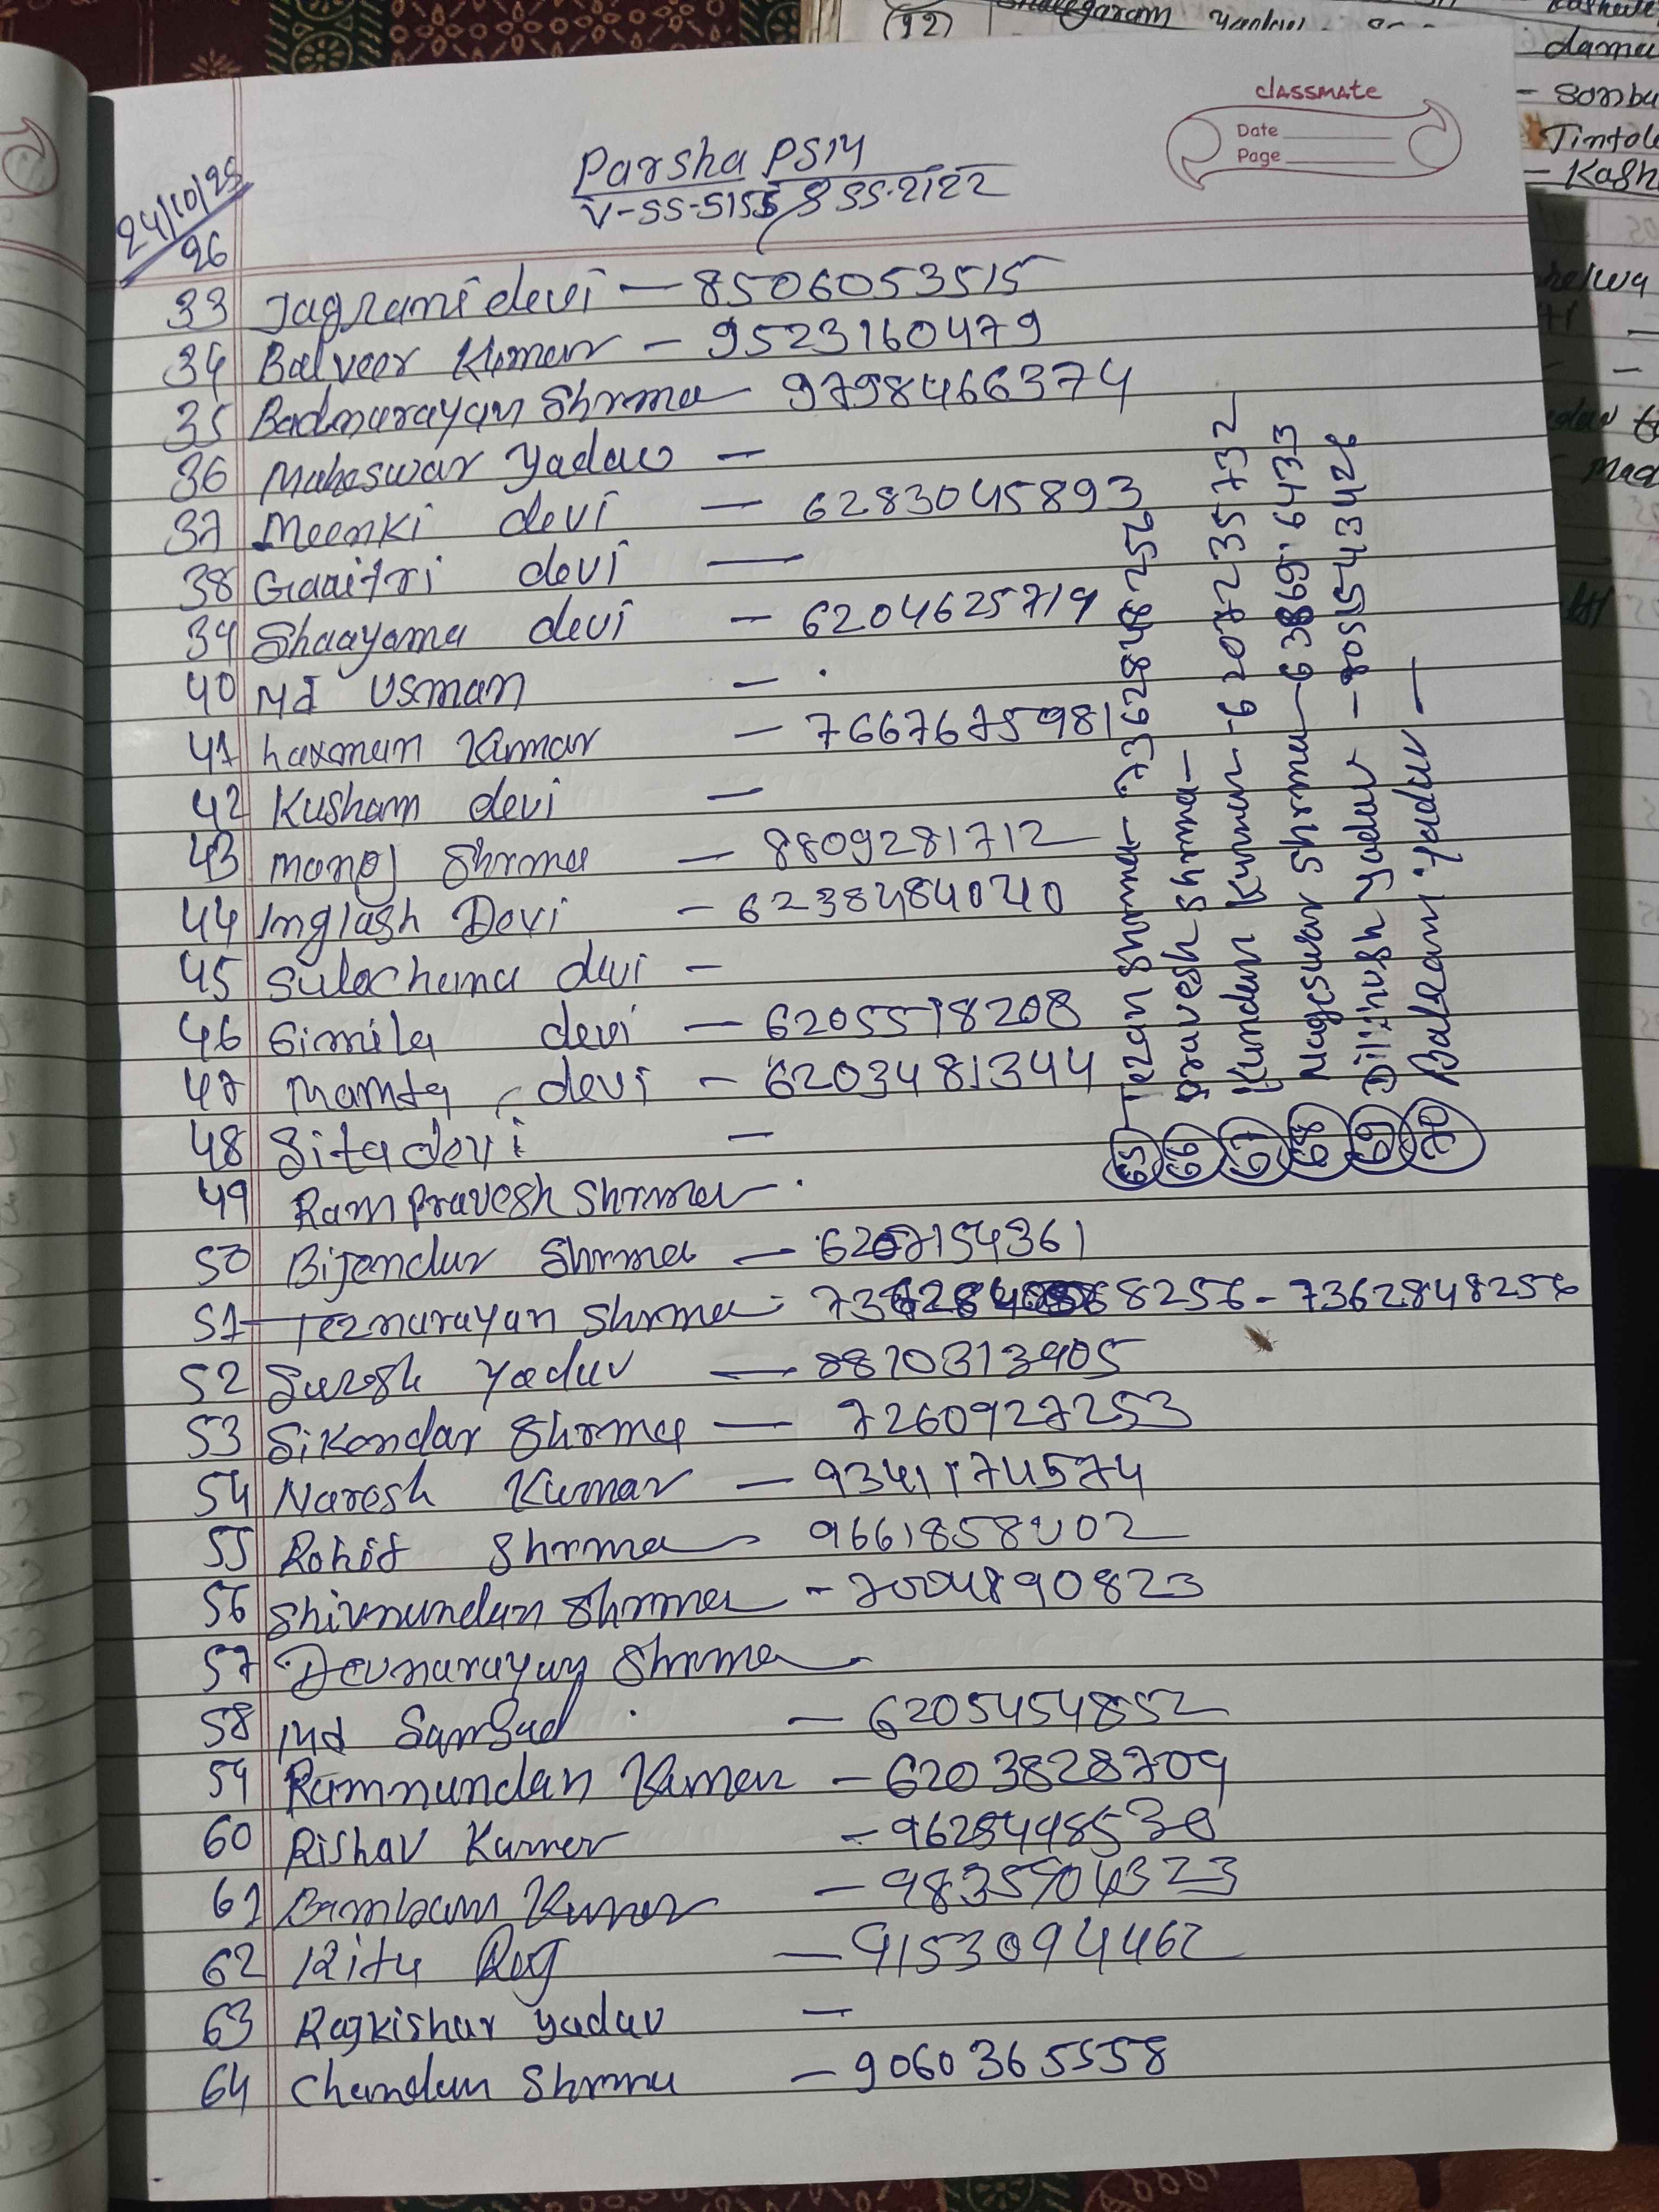 classmate
Date
Page
Parsha PS14
V-SS-5155 & SS-2122
24/10/25
26
33 Jagrani devi — 8506053515
34 Balveer Kumar — 9523160479
35 Badnarayan Shrma 9798466374
36 Maheswar Yadav —
37 Meenki devi — 6283045893
38 Gaaitri devi —
39 Shaayama devi — 6204625719
40 Md Usman —
41 Laxman Kumar — 7667675981
42 Kusham devi —
43 Manoj Shrma — 8809281712
44 Inglash Devi — 6238484040
45 Sulochana devi —
46 Simila devi — 6205518208
47 Mamta devi — 6203481344
48 Sita devi —
49 Rampravesh Shrma
50 Bijendar Shrma — 6207154361
51 Teznarayan Shrma 8256 - 7362848256
52 Suresh Yaduv — 8870313905
53 Sikandar Shrma — 7260927253
54 Naresh Kumar — 9341174574
55 Rohit Shrma 9661858402
56 Shivnundan Shrma - 7004890823
57 Devnarayan Shrma
58 Md — 6205454852
59 Ramnundan Kumar — 6203828709
60 Rishav Kumar — 9628449853
61 Bambam Kumar — 9835904323
62 Ritu Raj — 9153094462
63 Rajkishar yadav —
64 Chandan Shrma — 9060365558
65 Tezan Sharma - 7362848256
66 pravesh Shrma —
67 Kundan Kumar - 6207235732
68 Nageswar Shrma — 6386916433
69 Dilkhush Yadav — 8051543428
70 Balram Yadav —
(12)
dama
- Sonba
Tintole
- Kash